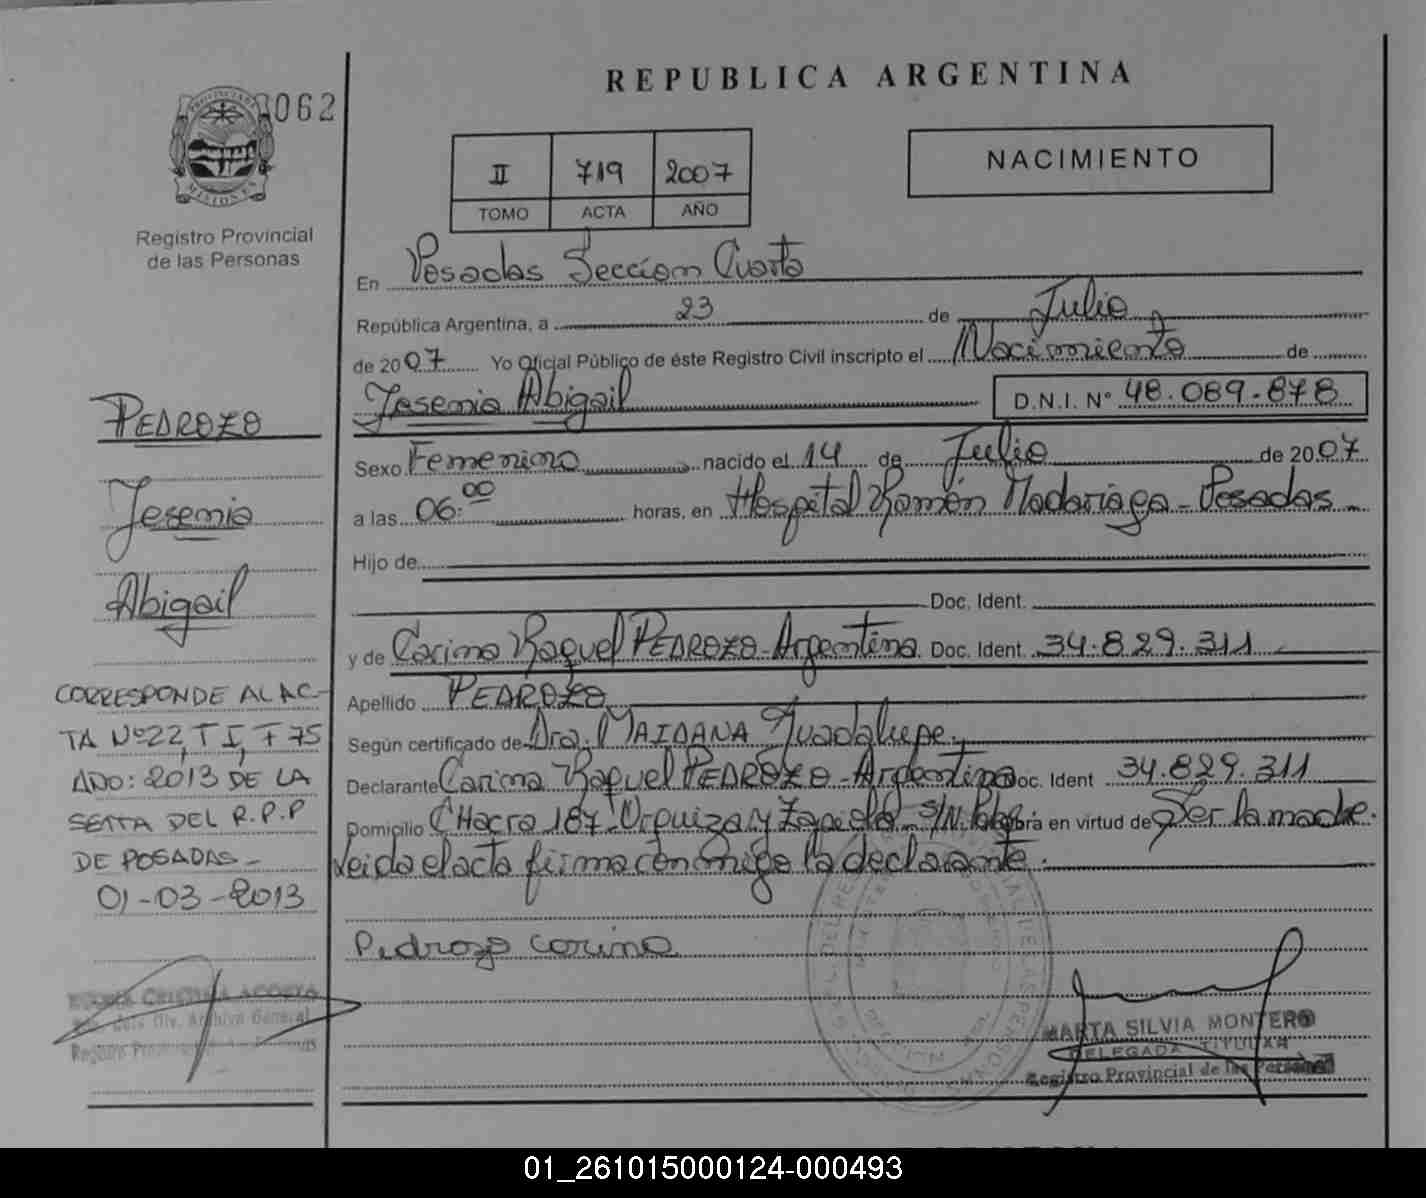 REPUBLICA ARGENTINA
062
PROVINCIA DE
MISIONES
Registro Provincial
de las Personas
II 719 2007
TOMO ACTA AÑO
NACIMIENTO
En Posadas Seccion Cuarta
República Argentina, a 23 de Julio
de 2007 Yo Oficial Público de éste Registro Civil inscripto el Nacimiento de
Jesemia Abigail D.N.I. N° 48.089.878
Sexo Femenino nacido el 14 de Julio de 2007
a las 06:00 horas, en Hospital Ramón Madariaga - Posadas
Hijo de
Doc. Ident.
y de Carina Raquel PEDROZO - Argentina Doc. Ident. 34.829.311
Apellido PEDROZO
Según certificado de Dra. MAIDANA Guadalupe.
Declarante Carina Raquel PEDROZO - Argentina Doc. Ident 34.829.311
Domicilio CHacra 187 Urquiza y Zapiola S/N. obra en virtud de Ser la madre.
Leida el acta firma conmigo la declarante.
Pedrozo carina
MARTA SILVIA MONTERO
DELEGADA TITULAR
Registro Provincial de las Personas
PEDROZO
Jesemia
Abigail
CORRESPONDE AL AC-
TA Nº22, T I, F 75
AÑO: 2013 DE LA
SEXTA DEL R.P.P
DE POSADAS -
01-03-2013
CRISTINA ACOSTA
Div. Archivo General
01_261015000124-000493